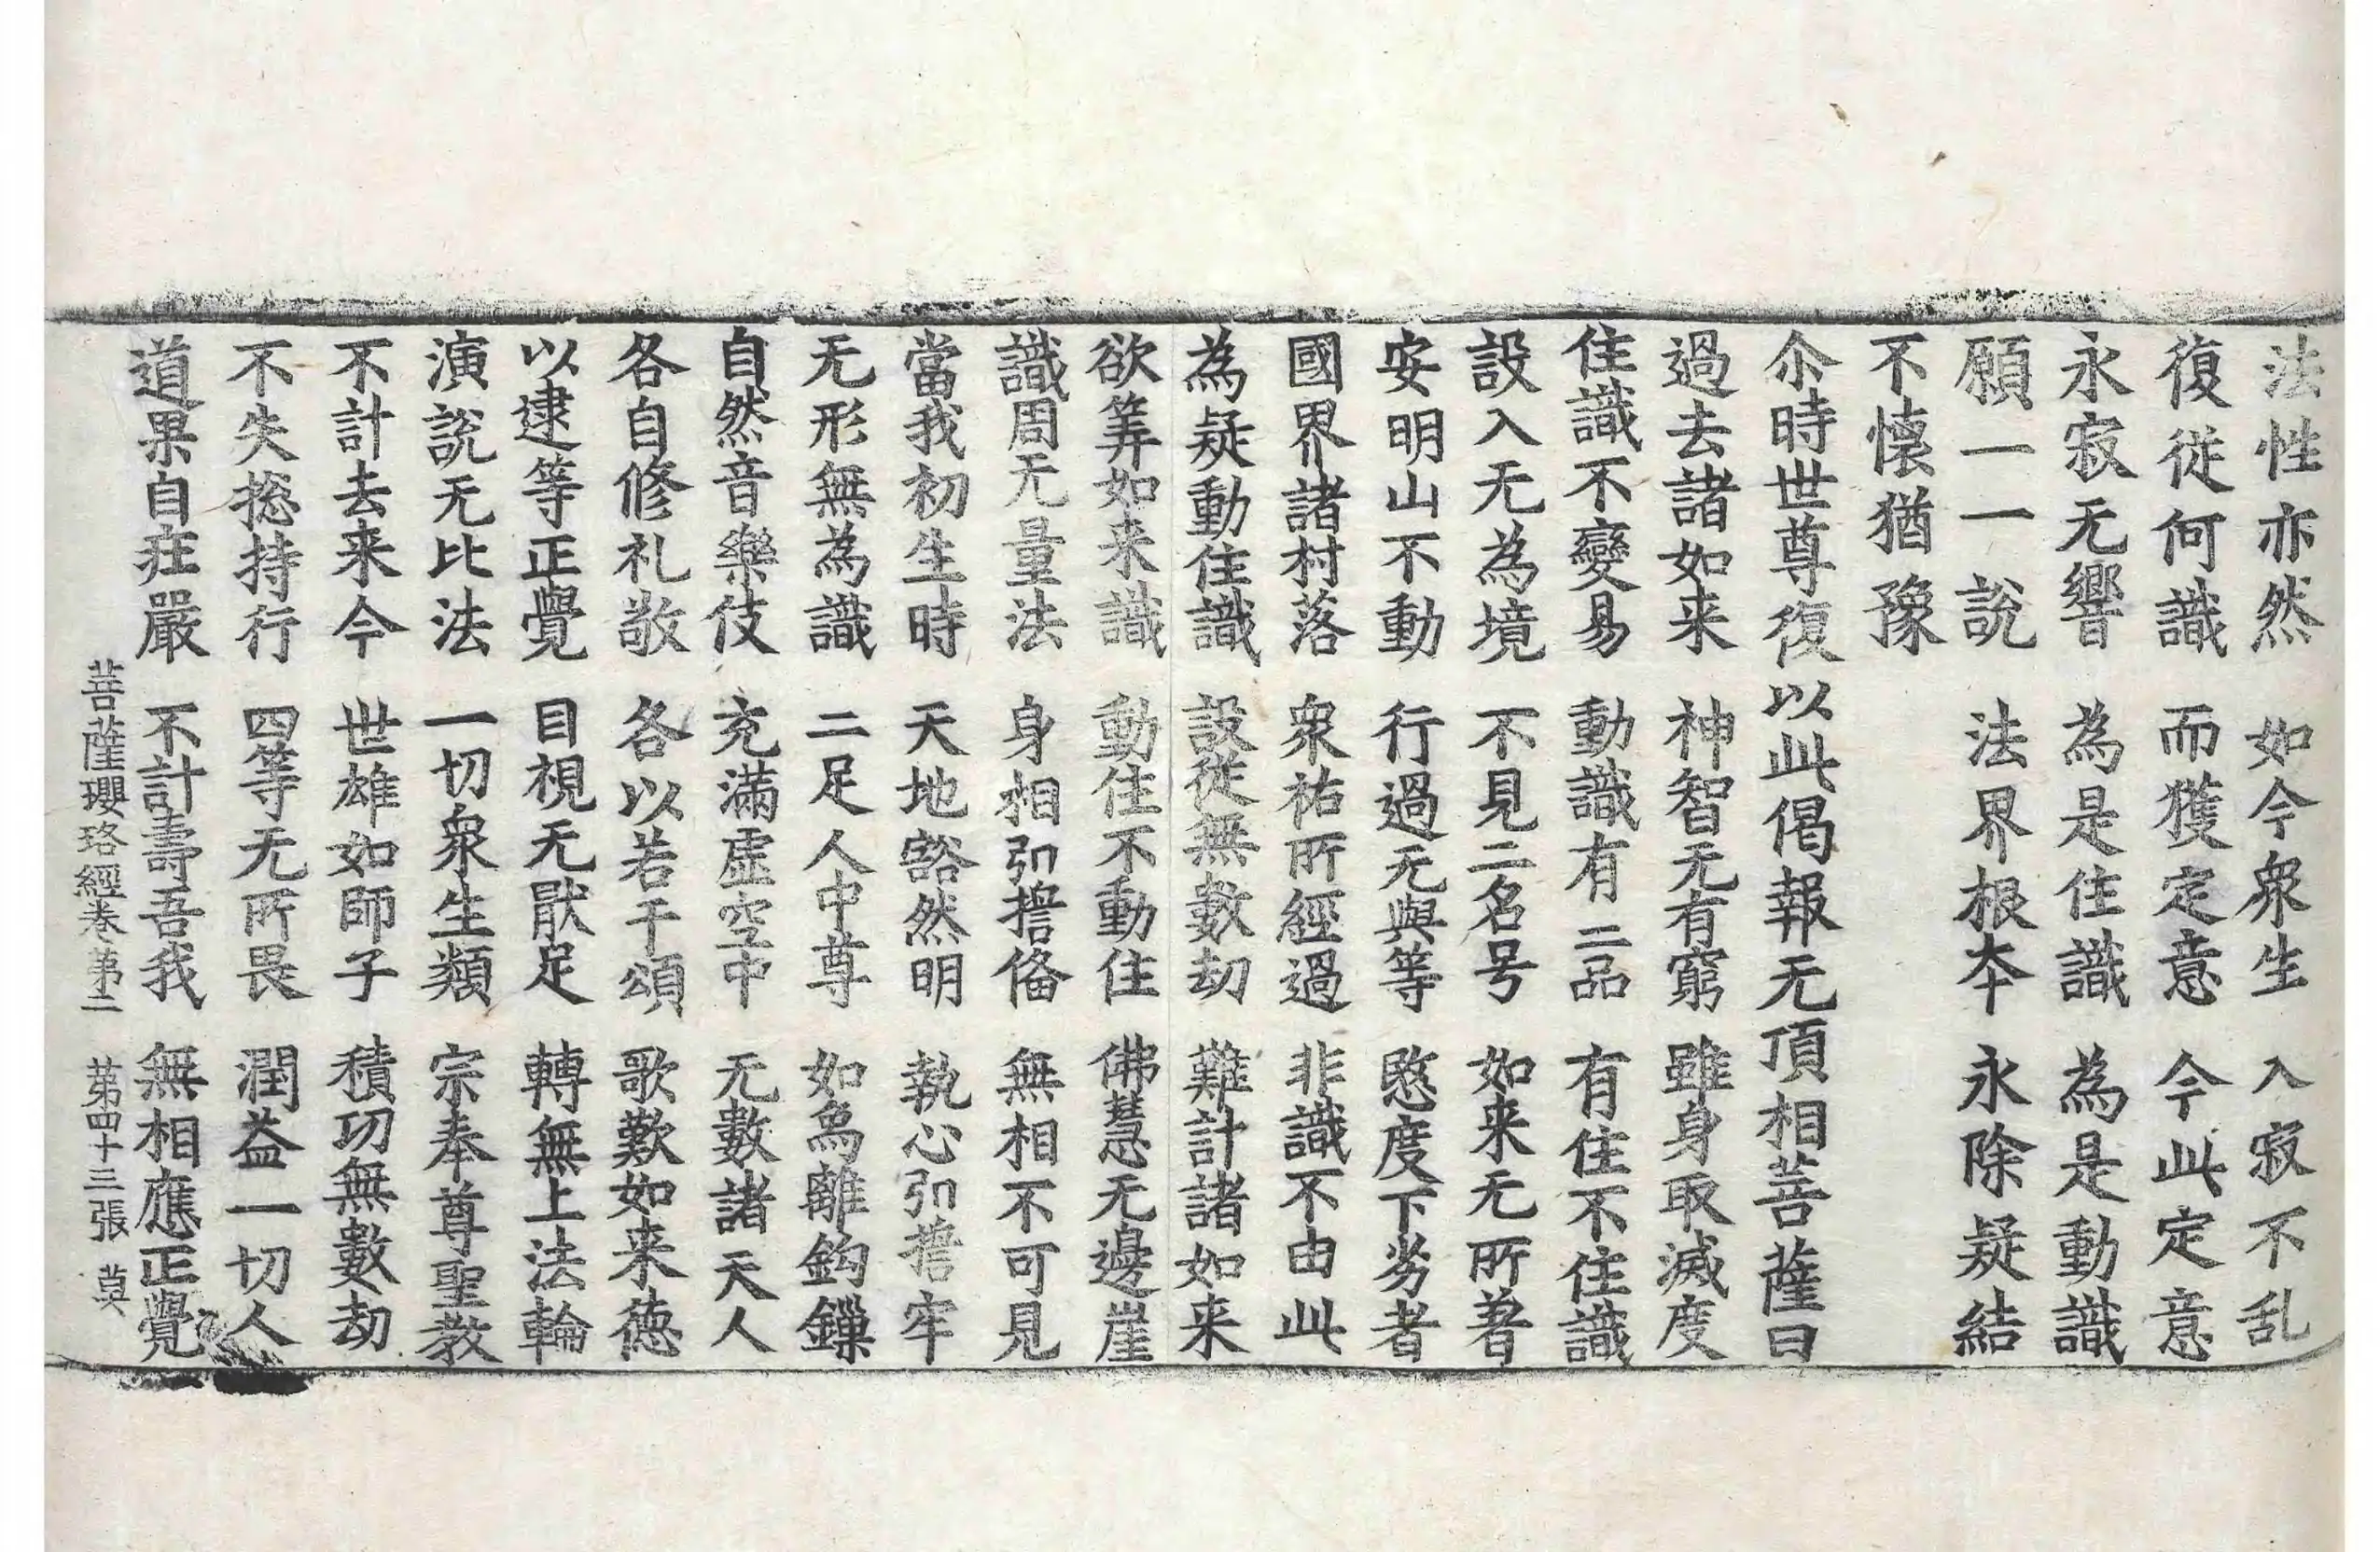 法性亦然　如今衆生　入寂不乱
復從何識　而獲定意　今此定意
永寂无響　為是住識　為是動識
願一一說　法界根夲　永除疑結
不懷猶豫
尒時世尊復以此偈報无頂相菩薩曰
過去諸如来　神智无有窮　雖身取滅度
住識不變易　動識有二品　有住不住識
設入无為境　不見二名号　如来无所著
安明山不動　行過无與等　愍度下劣者
國界諸村落　衆祐所經過　非識不由此
為疑動住識　設從無數劫　難計諸如来
欲筭如来識　動住不動住　佛慧无邊崖
識周无量法　身相引擔俻　無相不可見
當我初生時　天地豁然明　執心引擔牢
无形無為識　二足人中尊　如為離鈎鏁
自然音樂伎　充滿虛空中　无數諸天人
各自修礼敬　各以若干頌　歌歎如来德
以逮等正覺　目視无猒足　轉無上法輪
演說无比法　一切衆生類　宗奉尊聖教
不計去来今　世雄如師子　積功無數劫
不失捴持行　四等无所畏　潤益一切人
道果自莊嚴　不計壽吾我　無相應正覺
菩薩瓔珞經卷第二　第四十三張　莫